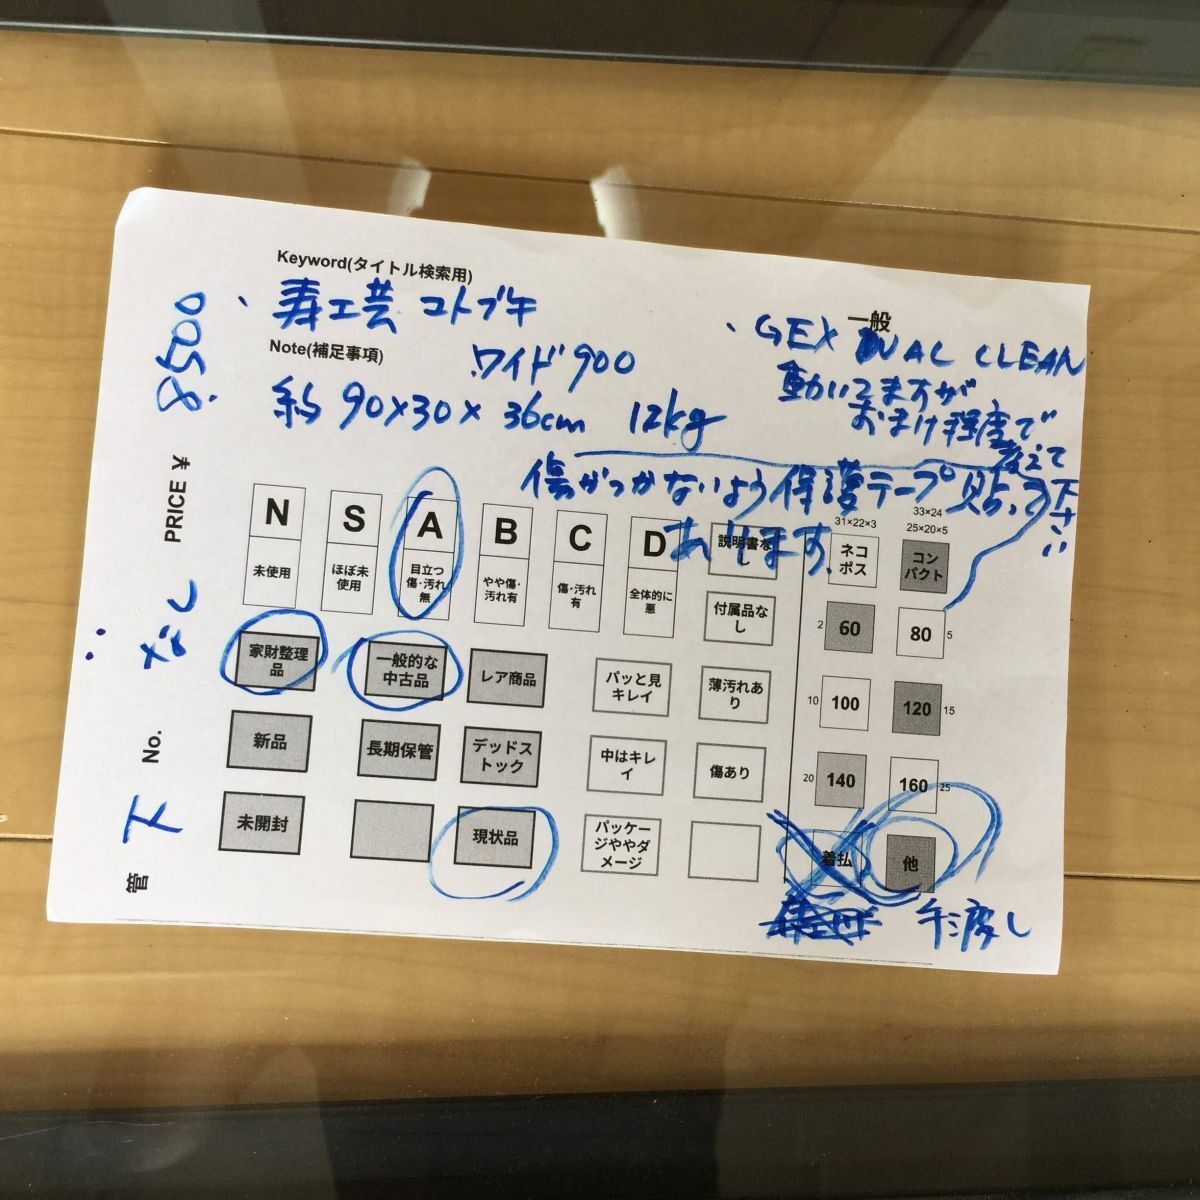 Keyword(タイトル検索用)
・寿工芸 コトブキ
Note(補足事項)
ワイド900
約 90×30×36cm 12kg
一般
・GEX DUAL CLEAN
動いてますが
おまけ程度で
考えて
下さい
傷がつかないよう保護テープ貼って
あります。
PRICE ¥ 8500
管 下 No. なし
N 未使用
S ほぼ未使用
A 目立つ傷・汚れ無
B やや傷・汚れ有
C 傷・汚れ有
D 全体的に悪
説明書なし
付属品なし
家財整理品
一般的な中古品
レア商品
パッと見キレイ
薄汚れあり
新品
長期保管
デッドストック
中はキレイ
傷あり
未開封
現状品
パッケージややダメージ
31×22×3
33×24
25×20×5
ネコポス
コンパクト
2 60 80 5
10 100 120 15
20 140 160 25
着払 他
手渡し